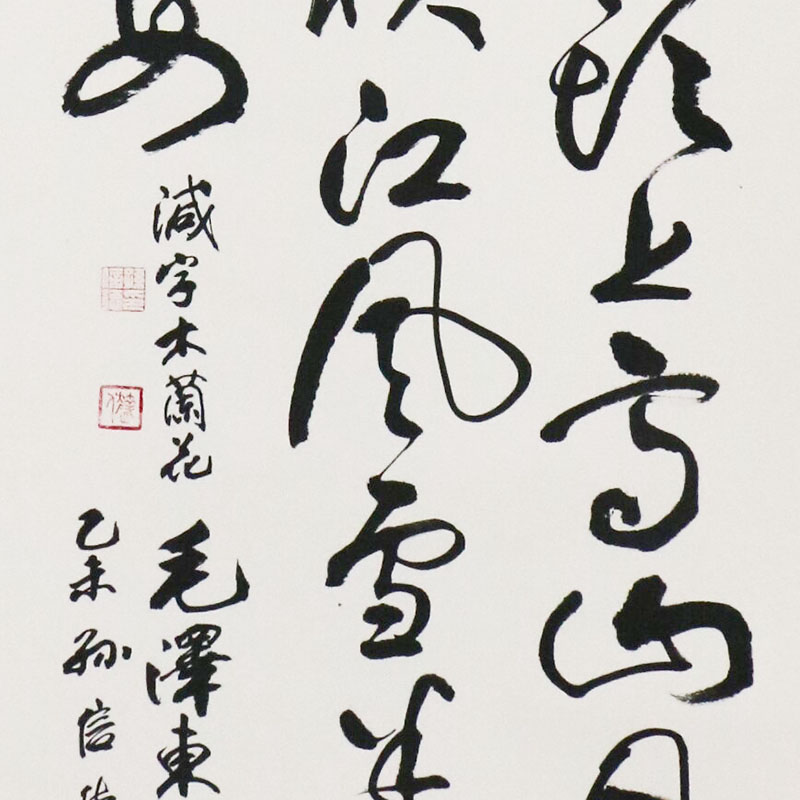 頭上高山
江风雪
安
減字木蘭花 毛澤東
乙未 孫信